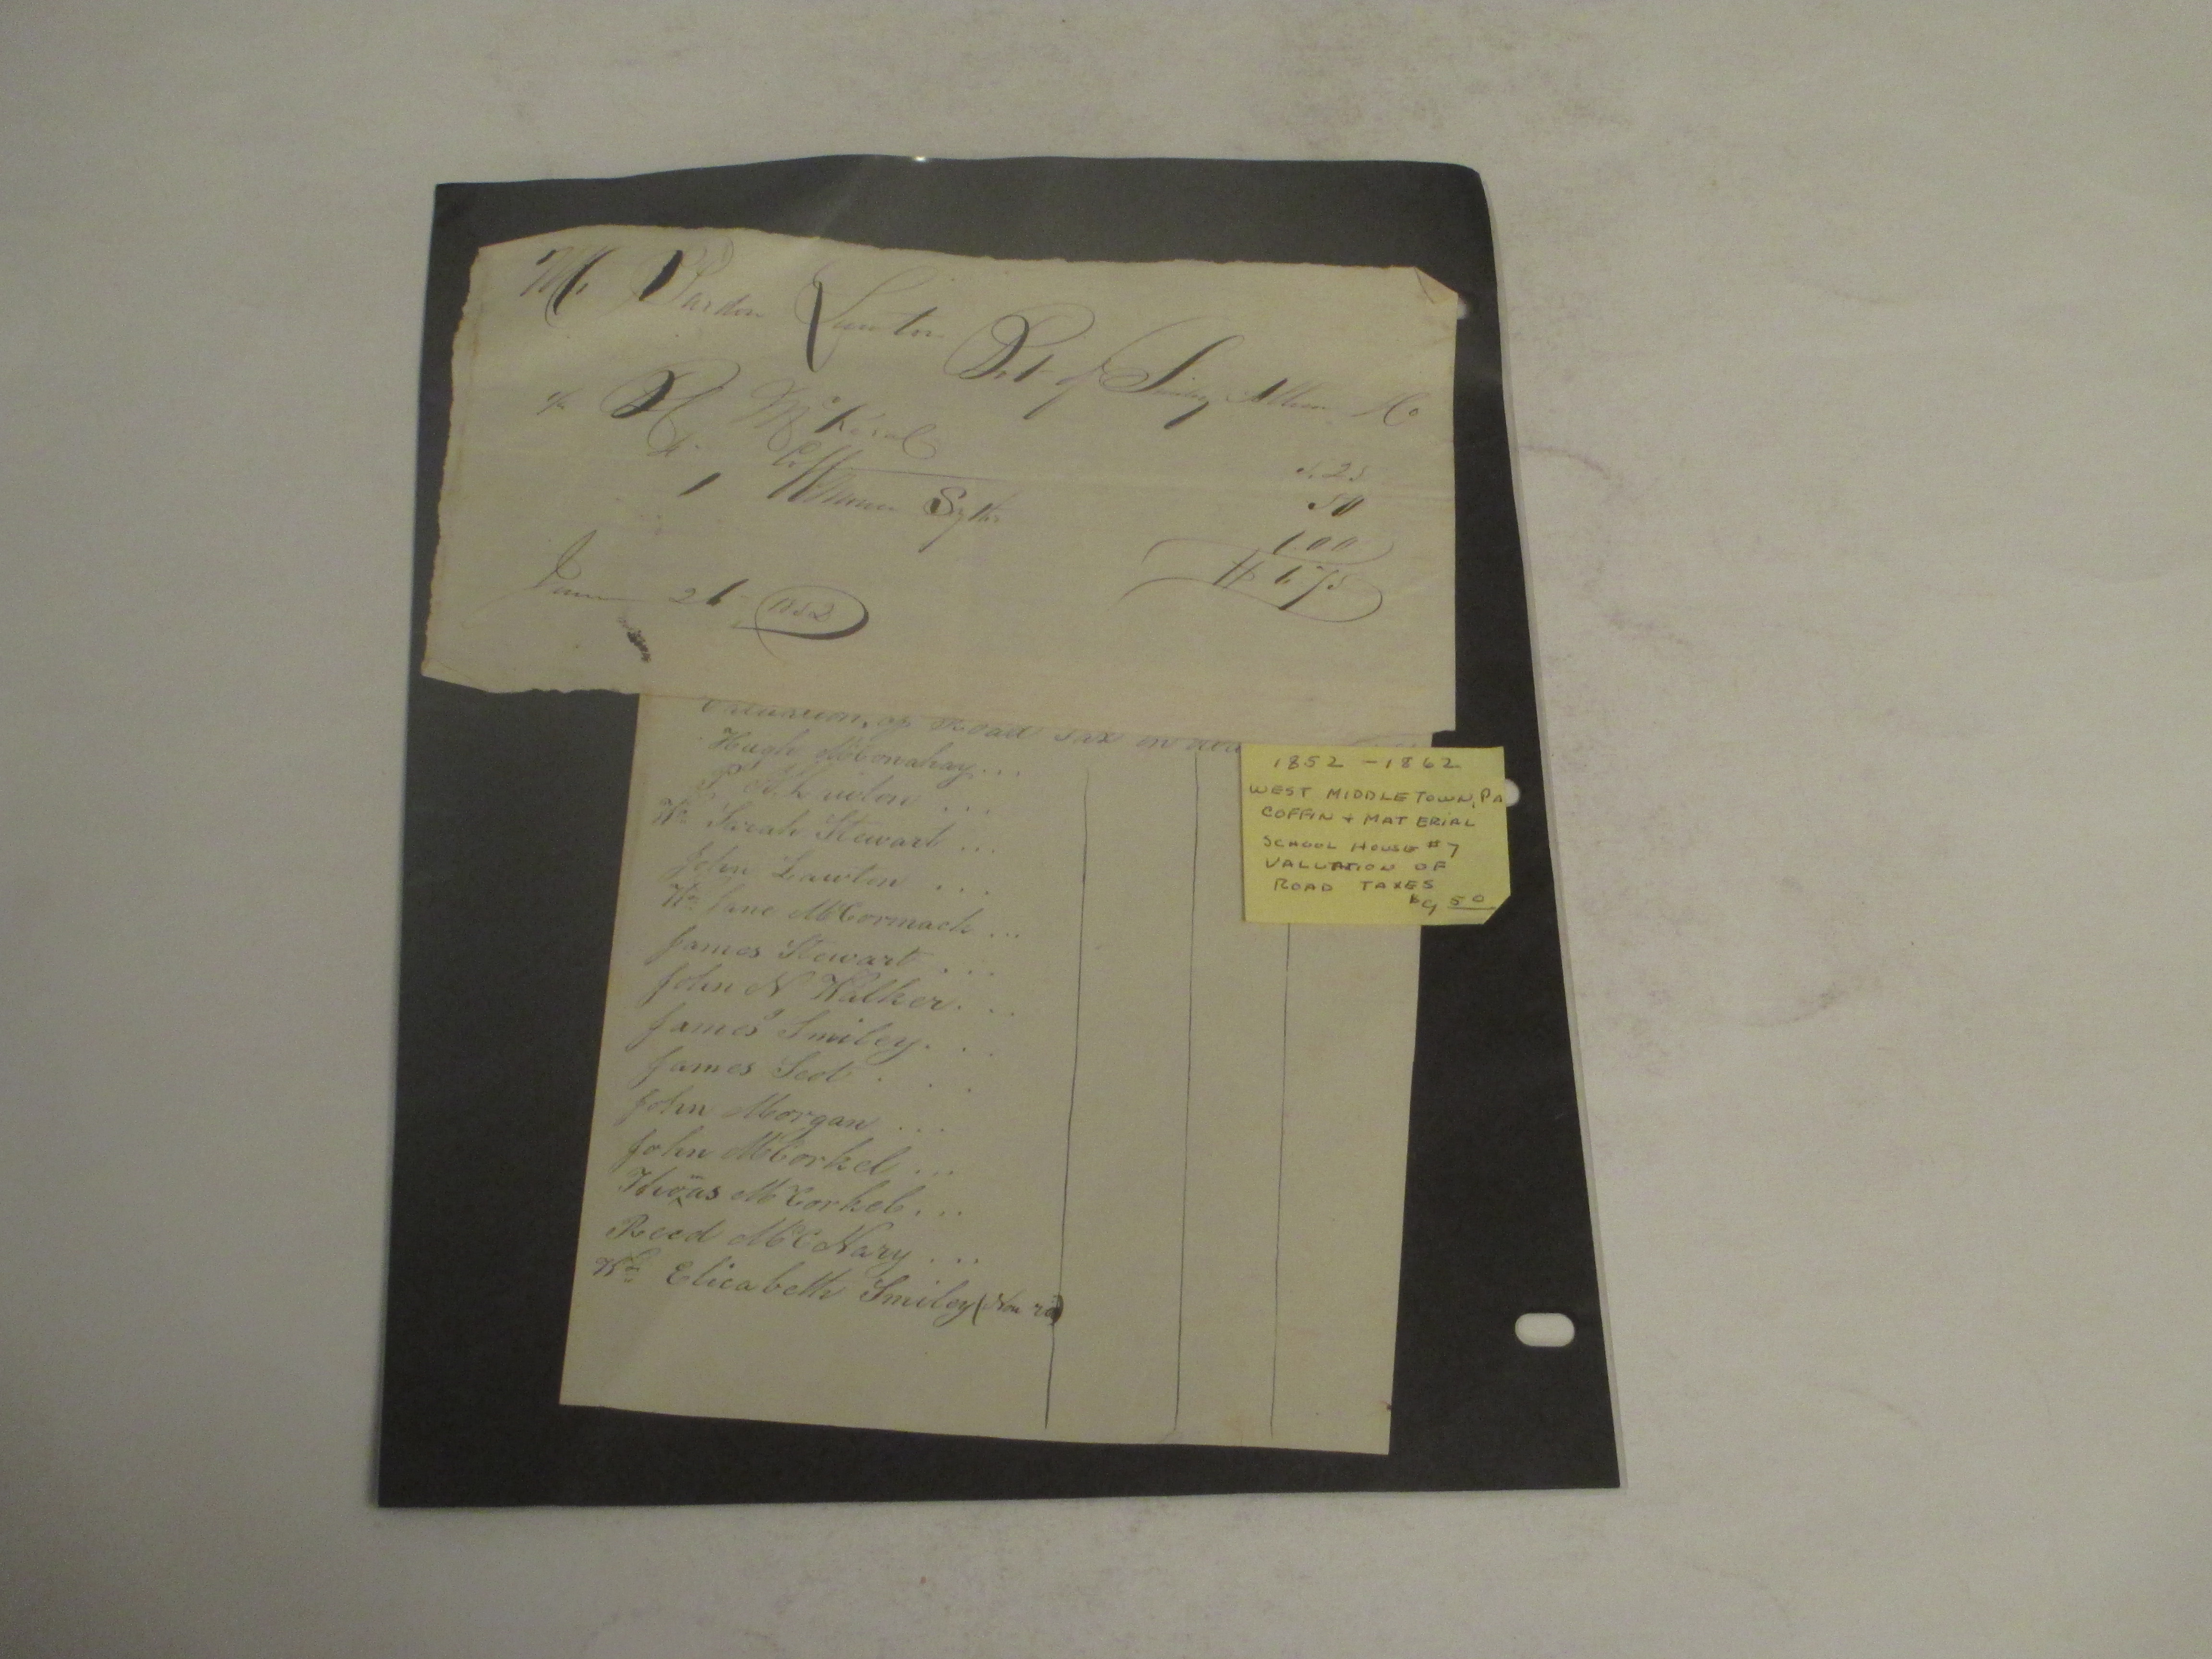 Mr Pardon Lawton
Bt of Smiley Allison & Co
McKeral
1 Sythe
.25
.50
1.00
June 26 1852
$1.75
of Road Tax in
Hugh McConahay...
Lawton ...
Wd Sarah Stewart ...
John Lawton ...
Wd Jane McCormack ...
James Stewart ...
John N Walker...
James Smiley...
James Scot ...
John Morgan ...
John McCorkel ...
Thomas McCorkel...
Reed McNary ...
Wd Elicabeth Smiley
1852 - 1862
WEST MIDDLETOWN, PA
COFFIN + MATERIAL
SCHOOL HOUSE #7
VALUATION OF
ROAD TAXES
$9 50